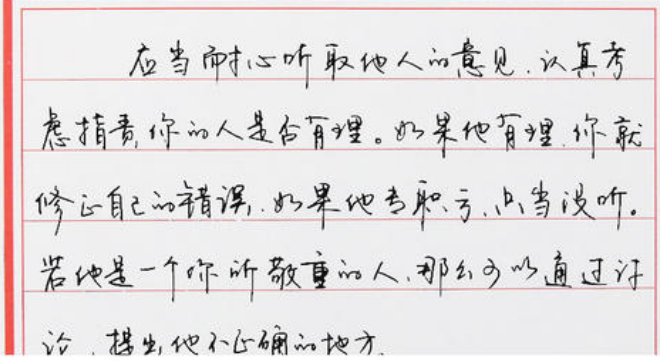 应当耐心听取他人的意见,认真考
虑指责你的人是否有理。如果他有理,你就
修正自己的错误,如果他专职亏,只当没听。
若他是一个你所敬重的人,那么可以通过讨
论,提出他不正确的地方